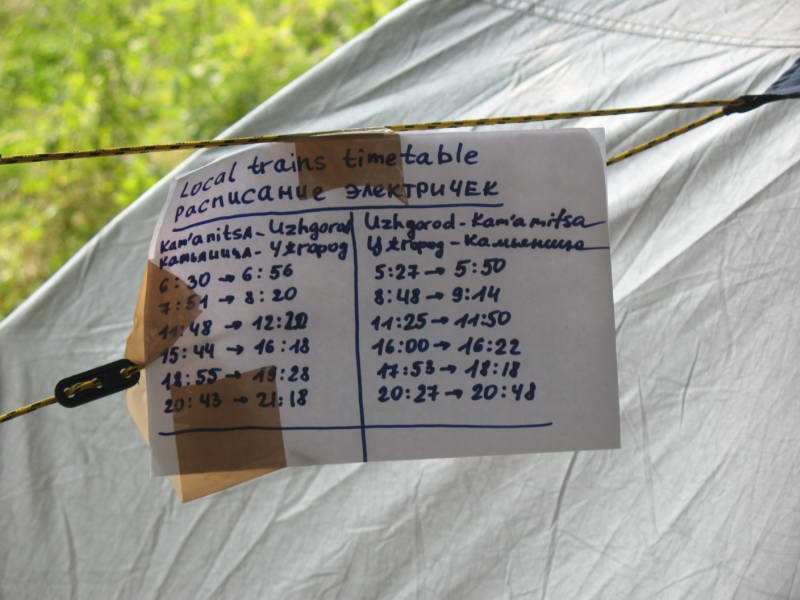 Local trains timetable
РАСПИСАНИЕ ЭЛЕКТРИЧЕК
Kam'anitsa - Uzhgorod
Камьяница - Ужгород
6:30 → 6:56
7:51 → 8:20
11:48 → 12:20
15:44 → 16:18
18:55 → 19:28
20:43 → 21:18
Uzhgorod - Kam'anitsa
Ужгород - Камьяница
5:27 → 5:50
8:48 → 9:14
11:25 → 11:50
16:00 → 16:22
17:53 → 18:18
20:27 → 20:48